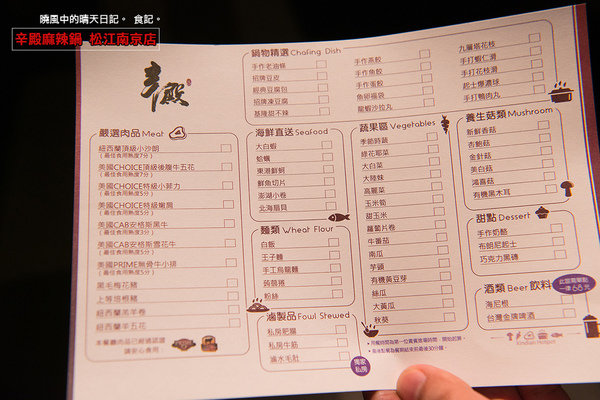 曉風中的晴天日記。 食記。
辛殿麻辣鍋 松江南京店
辛殿
鍋物精選 Chafing Dish
手作老油條
招牌豆皮
經典豆腐包
招牌凍豆腐
基隆甜不辣
手作燕餃
手作魚餃
手作蛋餃
魚卵福袋
龍蝦沙拉丸
九層塔花枝
手打蝦仁滑
手打花枝滑
起士爆濃球
手打鴨肉丸
嚴選肉品 Meat
紐西蘭頂級小沙朗
(最佳食用熟度7分)
美國CHOICE頂級後腹牛五花
(最佳食用熟度7分)
美國CHOICE特級小菲力
(最佳食用熟度5分)
美國CHOICE特級嫩肩
(最佳食用熟度5分)
美國CAB安格斯黑牛
(最佳食用熟度3分)
美國CAB安格斯雪花牛
(最佳食用熟度5分)
美國PRIME無骨牛小排
(最佳食用熟度7分)
黑毛梅花豬
上等培根豬
紐西蘭羔羊卷
紐西蘭羊五花
本餐廳肉品已經過認證
請安心食用
海鮮直送 Seafood
大白蝦
蛤蠣
東港鮮蚵
鮮魚切片
澎湖小卷
北海扇貝
麵類 Wheat Flour
白飯
王子麵
手工烏龍麵
蒟蒻捲
粉絲
滷製品 Fowl Stewed
私房肥腸
私房牛筋
滷水毛肚
獨家
私房
蔬果區 Vegetables
季節時蔬
綠花椰菜
大白菜
大陸妹
高麗菜
玉米筍
甜玉米
蘿蔔片卷
牛番茄
南瓜
芋頭
有機黃豆芽
絲瓜
大黃瓜
秋葵
養生菇類 Mushroom
新鮮香菇
杏鮑菇
金針菇
美白菇
鴻喜菇
有機黑木耳
甜點 Dessert
手作奶酪
布朗尼起士
巧克力黑磚
酒類 Beer 飲料
海尼根
台灣金牌啤酒
此區需單點
一律68元
Xindian Hotpot